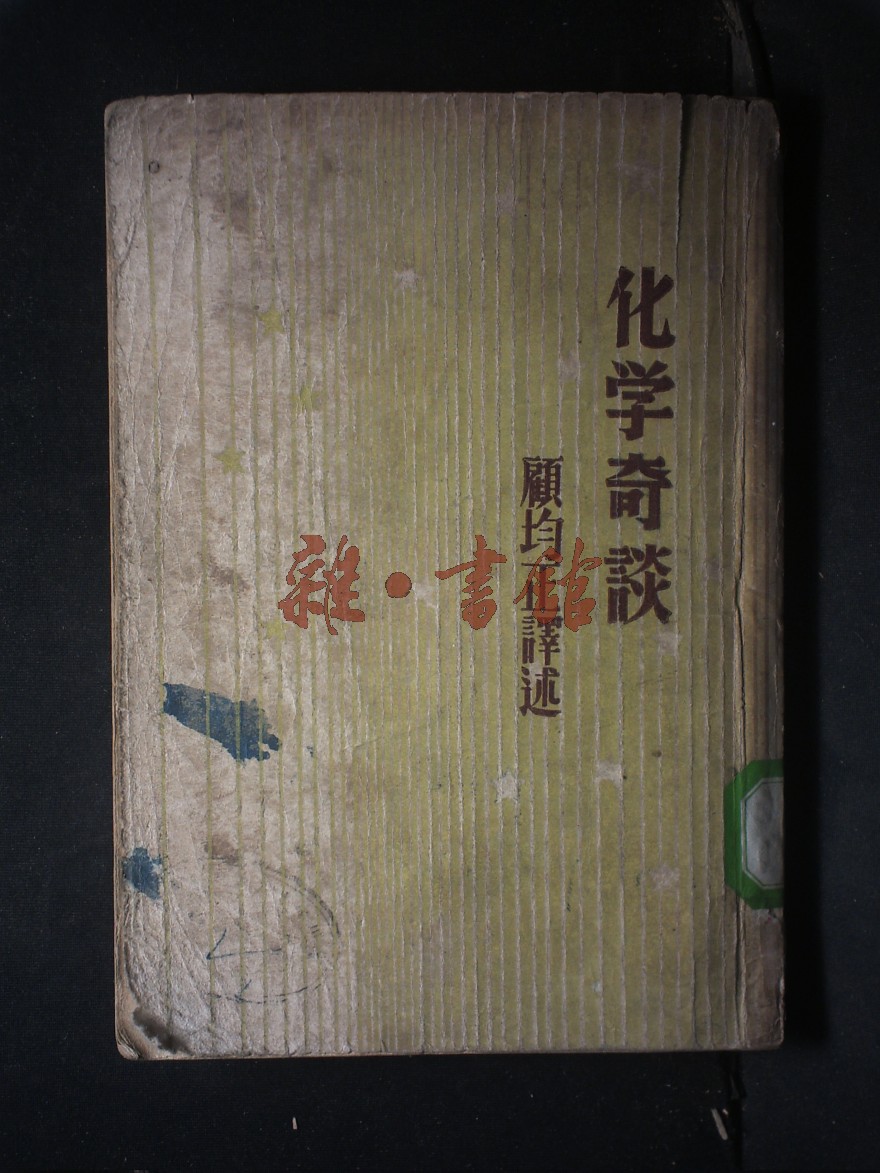 化学奇談
顧均正譯述
雜·書館